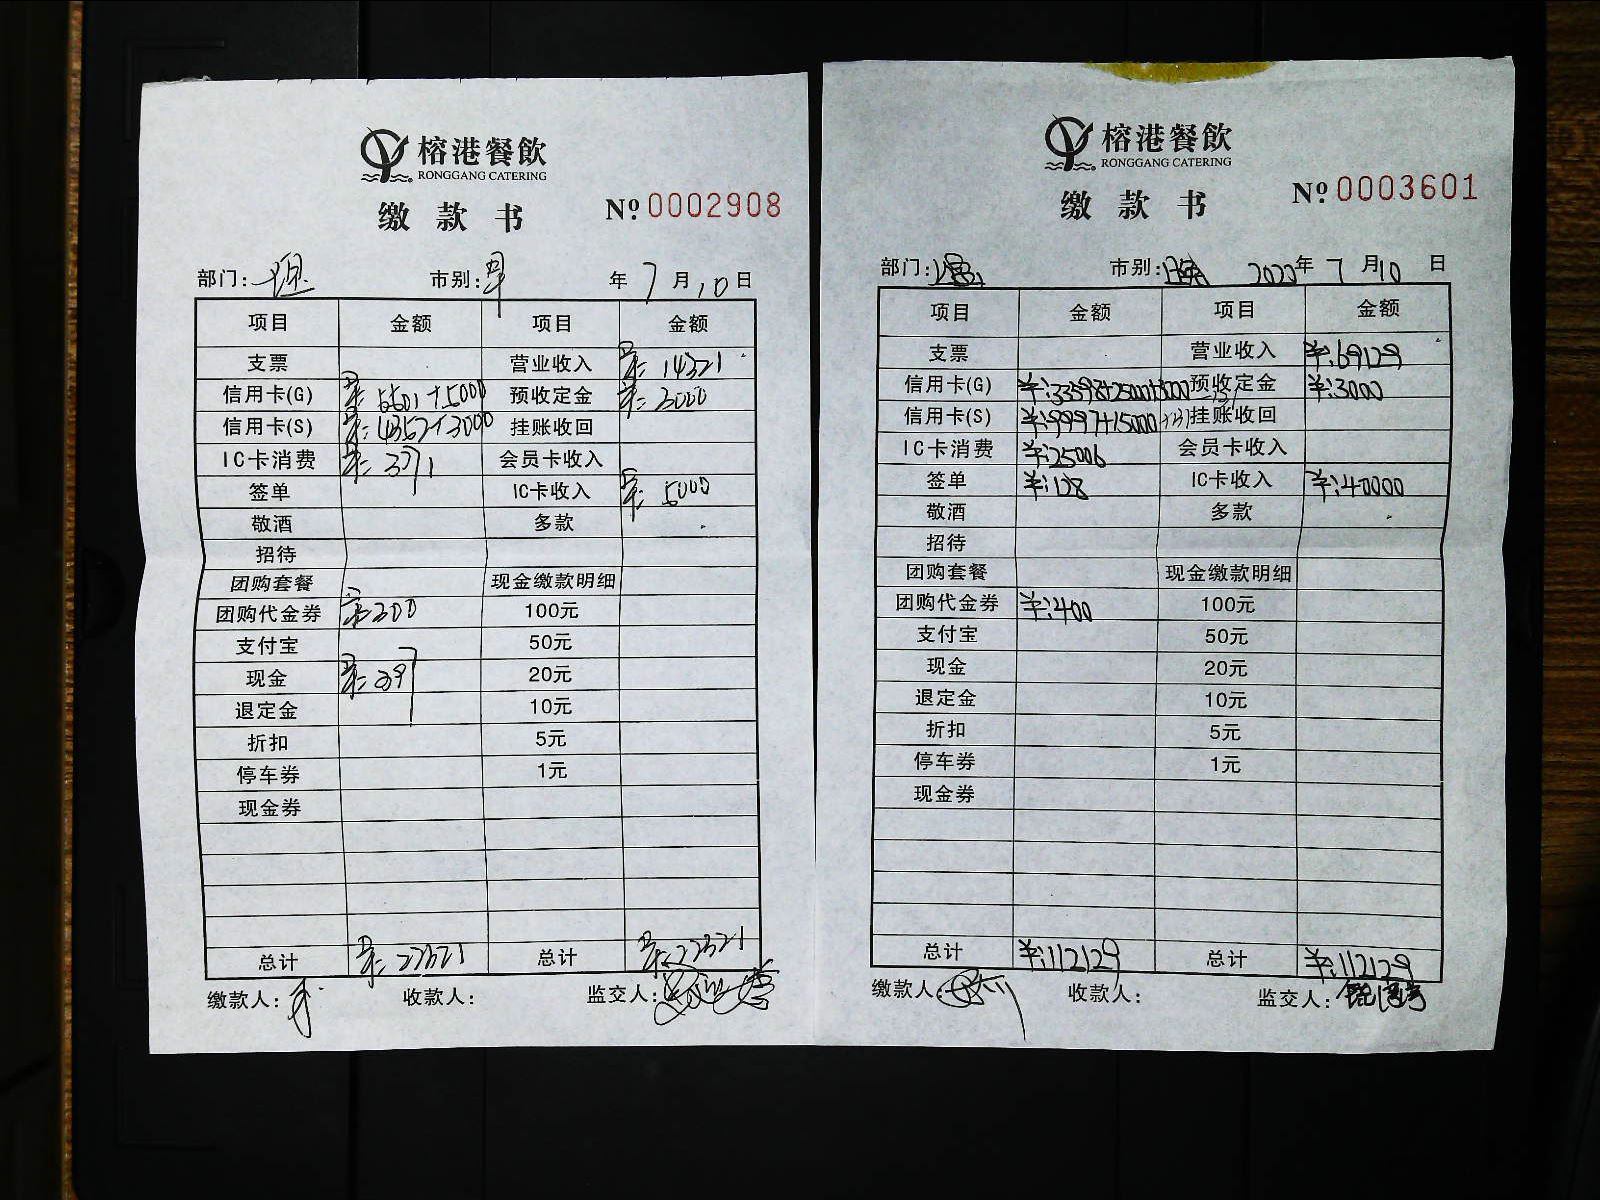 榕港餐飲
RONGGANG CATERING
缴款书
№ 0002908
部门: 市别: 年 7 月 10 日
项目 金额 项目 金额
支票 营业收入 ¥: 14321
信用卡(G) ¥: 6601+5000 预收定金 ¥: 3000
信用卡(S) ¥: 4352+3000 挂账收回
IC卡消费 ¥: 3371 会员卡收入
签单 IC卡收入 ¥: 5000
敬酒 多款
招待
团购套餐 现金缴款明细
团购代金券 ¥: 300 100元
支付宝 50元
现金 20元
退定金 10元
折扣 5元
停车券 1元
现金券
总计 ¥: 22321 总计 ¥: 22321
缴款人: 收款人: 监交人:
榕港餐飲
RONGGANG CATERING
缴款书
№ 0003601
部门: 市别: 2022年 7 月 10 日
项目 金额 项目 金额
支票 营业收入 ¥:69129
信用卡(G) 预收定金 ¥:3000
信用卡(S) 挂账收回
IC卡消费 ¥:25006 会员卡收入
签单 ¥:128 IC卡收入 ¥:40000
敬酒 多款
招待
团购套餐 现金缴款明细
团购代金券 ¥:400 100元
支付宝 50元
现金 20元
退定金 10元
折扣 5元
停车券 1元
现金券
总计 ¥:112129 总计 ¥:112129
缴款人: 收款人: 监交人: